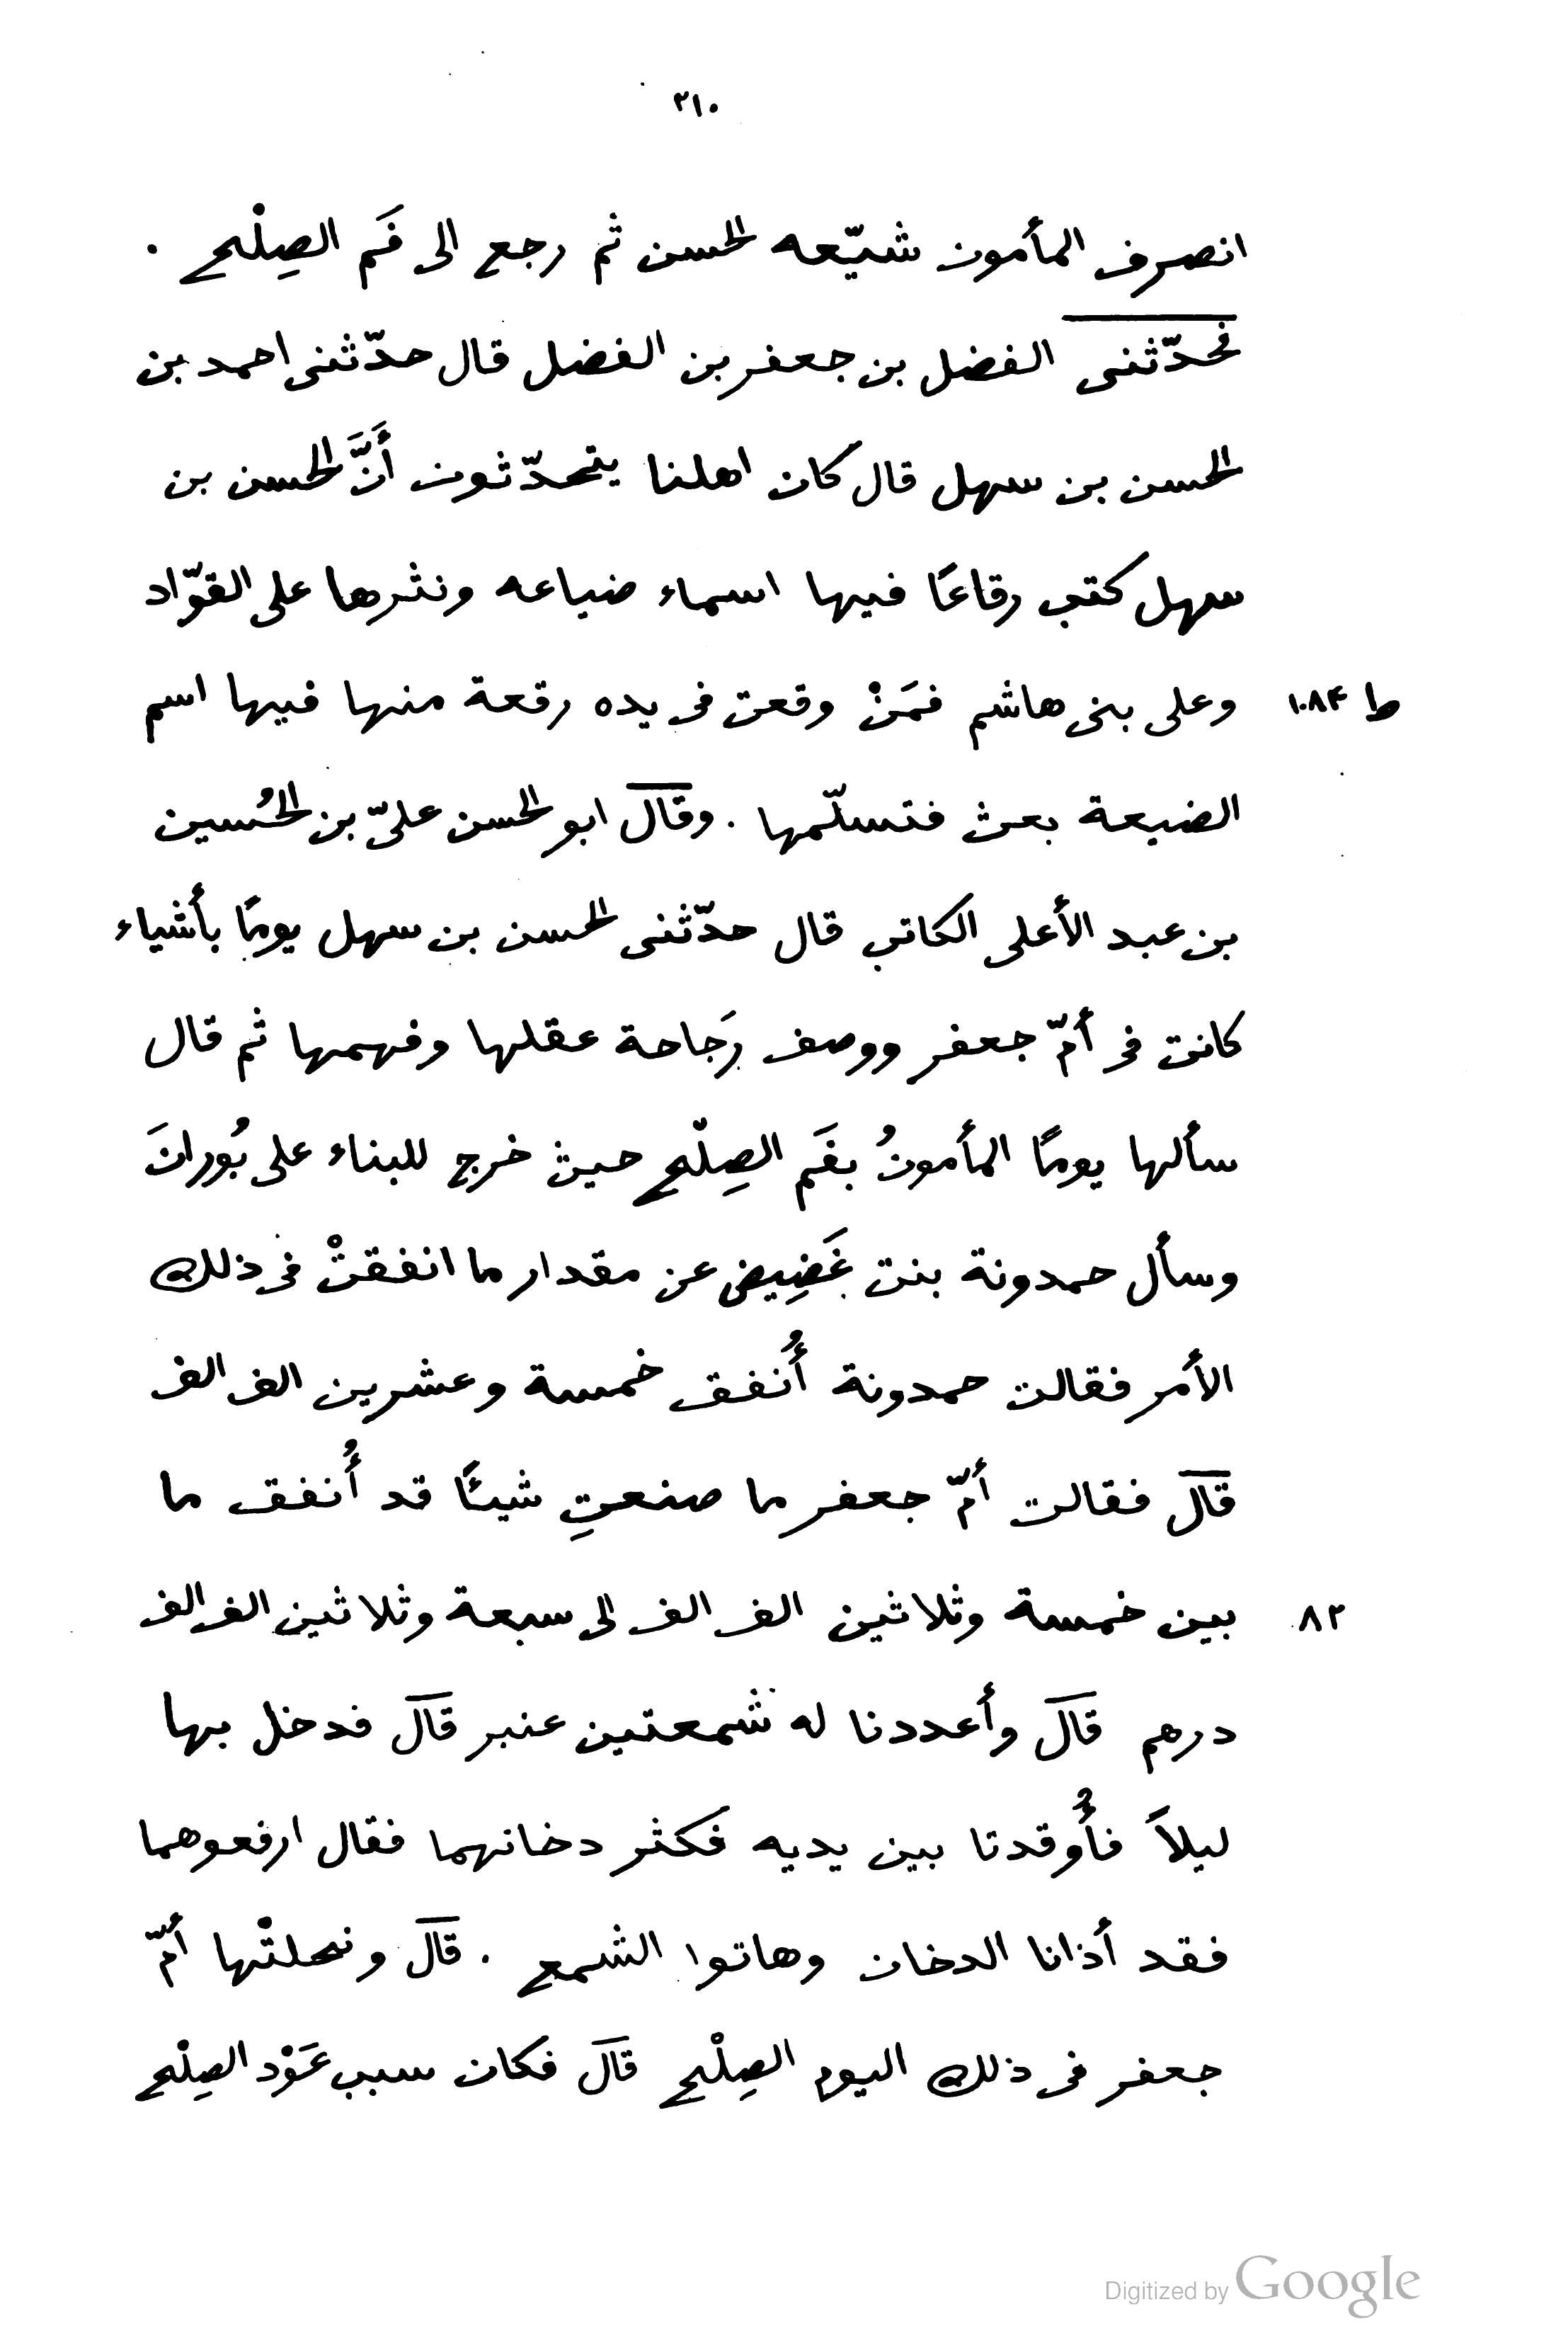 ٢١٠
انصرف المأمون شيّعه الحسن ثم رجع الى فَم الصِلْح .
فحدّثنى الفضل بن جعفر بن الفضل قال حدّثنى احمد بن
الحسن بن سهل قال كان اهلنا يتحدّثون أَنَّ الحسن بن
سهل كتب رقاعًا فيها اسماء ضياعه ونثرها على القوّاد
وعلى بنى هاشم فمَنْ وقعت فى يده رقعة منها فيها اسم ط ١٠٨٤
الضيعة بعث فتسلّمها . وقال ابو الحسن علىّ بن الحُسين
بن عبد الأعلى الكاتب قال حدّثنى الحسن بن سهل يومًا بأشياء
كانت فى أمّ جعفر ووصف رَجاحة عقلها وفهمها ثم قال
سألها يومًا المأمونُ بفَم الصِلْح حيث خرج للبناء على بُورانَ
وسأل حمدونة بنت غَضِيض عن مقدار ما انفقتْ فى ذلك
الأمر فقالت حمدونة أُنفق خمسة وعشرين الف الف
قال فقالت أمّ جعفر ما صنعتِ شيئًا قد أُنفق ما
بين خمسة وثلاثين الف الف الى سبعة وثلاثين الف الف ٨٢
درهم قال وأعددنا له شمعتين عنبر قال فدخل بها
ليلاً فأُوقدتا بين يديه فكثر دخانهما فقال ارفعوهما
فقد أذانا الدخان وهاتوا الشمع . قال ونحلتْها أمّ
جعفر فى ذلك اليوم الصِلْح قال فكان سبب عَوْد الصِلْح
Digitized by Google